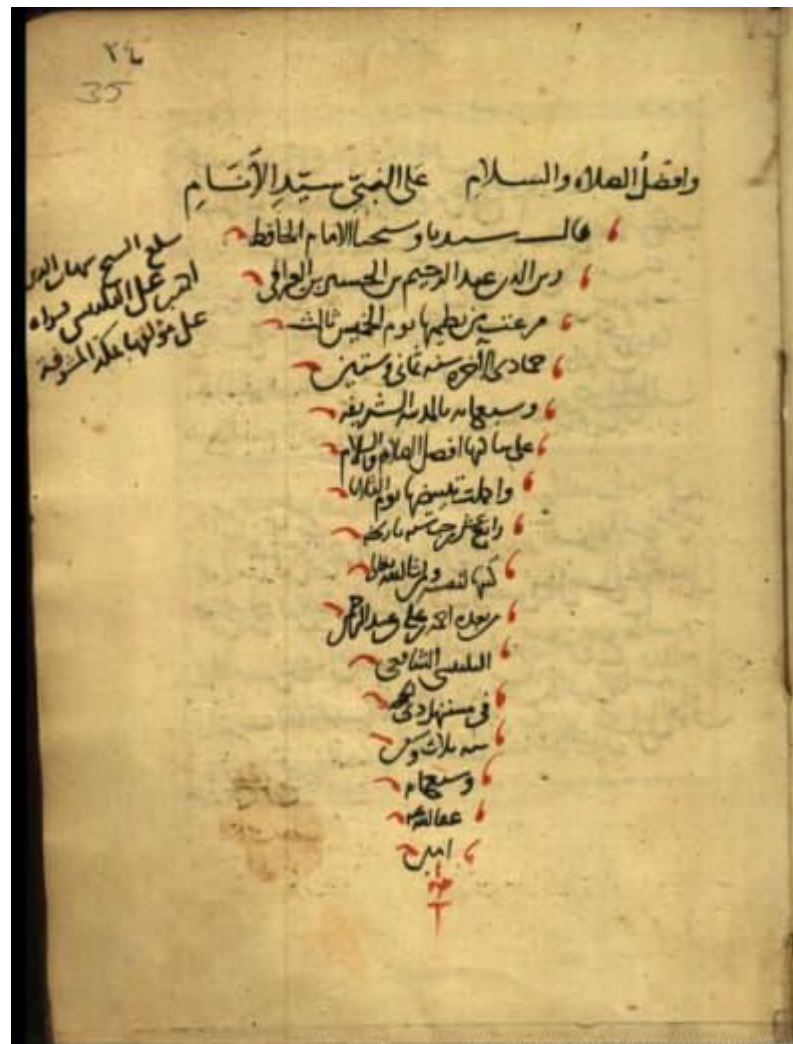 ٣٤
35
وافضلُ الصلاه والسلام عَلى النبيّ سيّدِ الأَنَامِ
قال سيدنا وشيخنا الامام الحافظ
زين الدين عبد الرحيم بن الحسين بن العراقي
فرغت من نظمها يوم الخميس ثالث
جمادى الآخره سنه ثمانى وستين
وسبعمايه بالمدينه الشريفه
على ساكنها افضل الصلاه والسلام
واكملت تبييضها يوم الثلاثا
رابع عشر رجب سنه تاريخه
كتبها لنفسه ولمن شا الله تعالى
من بعده احمد بن علي بن عبد الرحمن
البلبيسى الشافعى
فى مستهل ذى
سنه ثلاث وسبعين
وسبعمايه
عفا الله عنه
امين
بلغ الشيخ برهان الدين
على البلبيسى قراه
على مؤلفها بمكة المشرفة